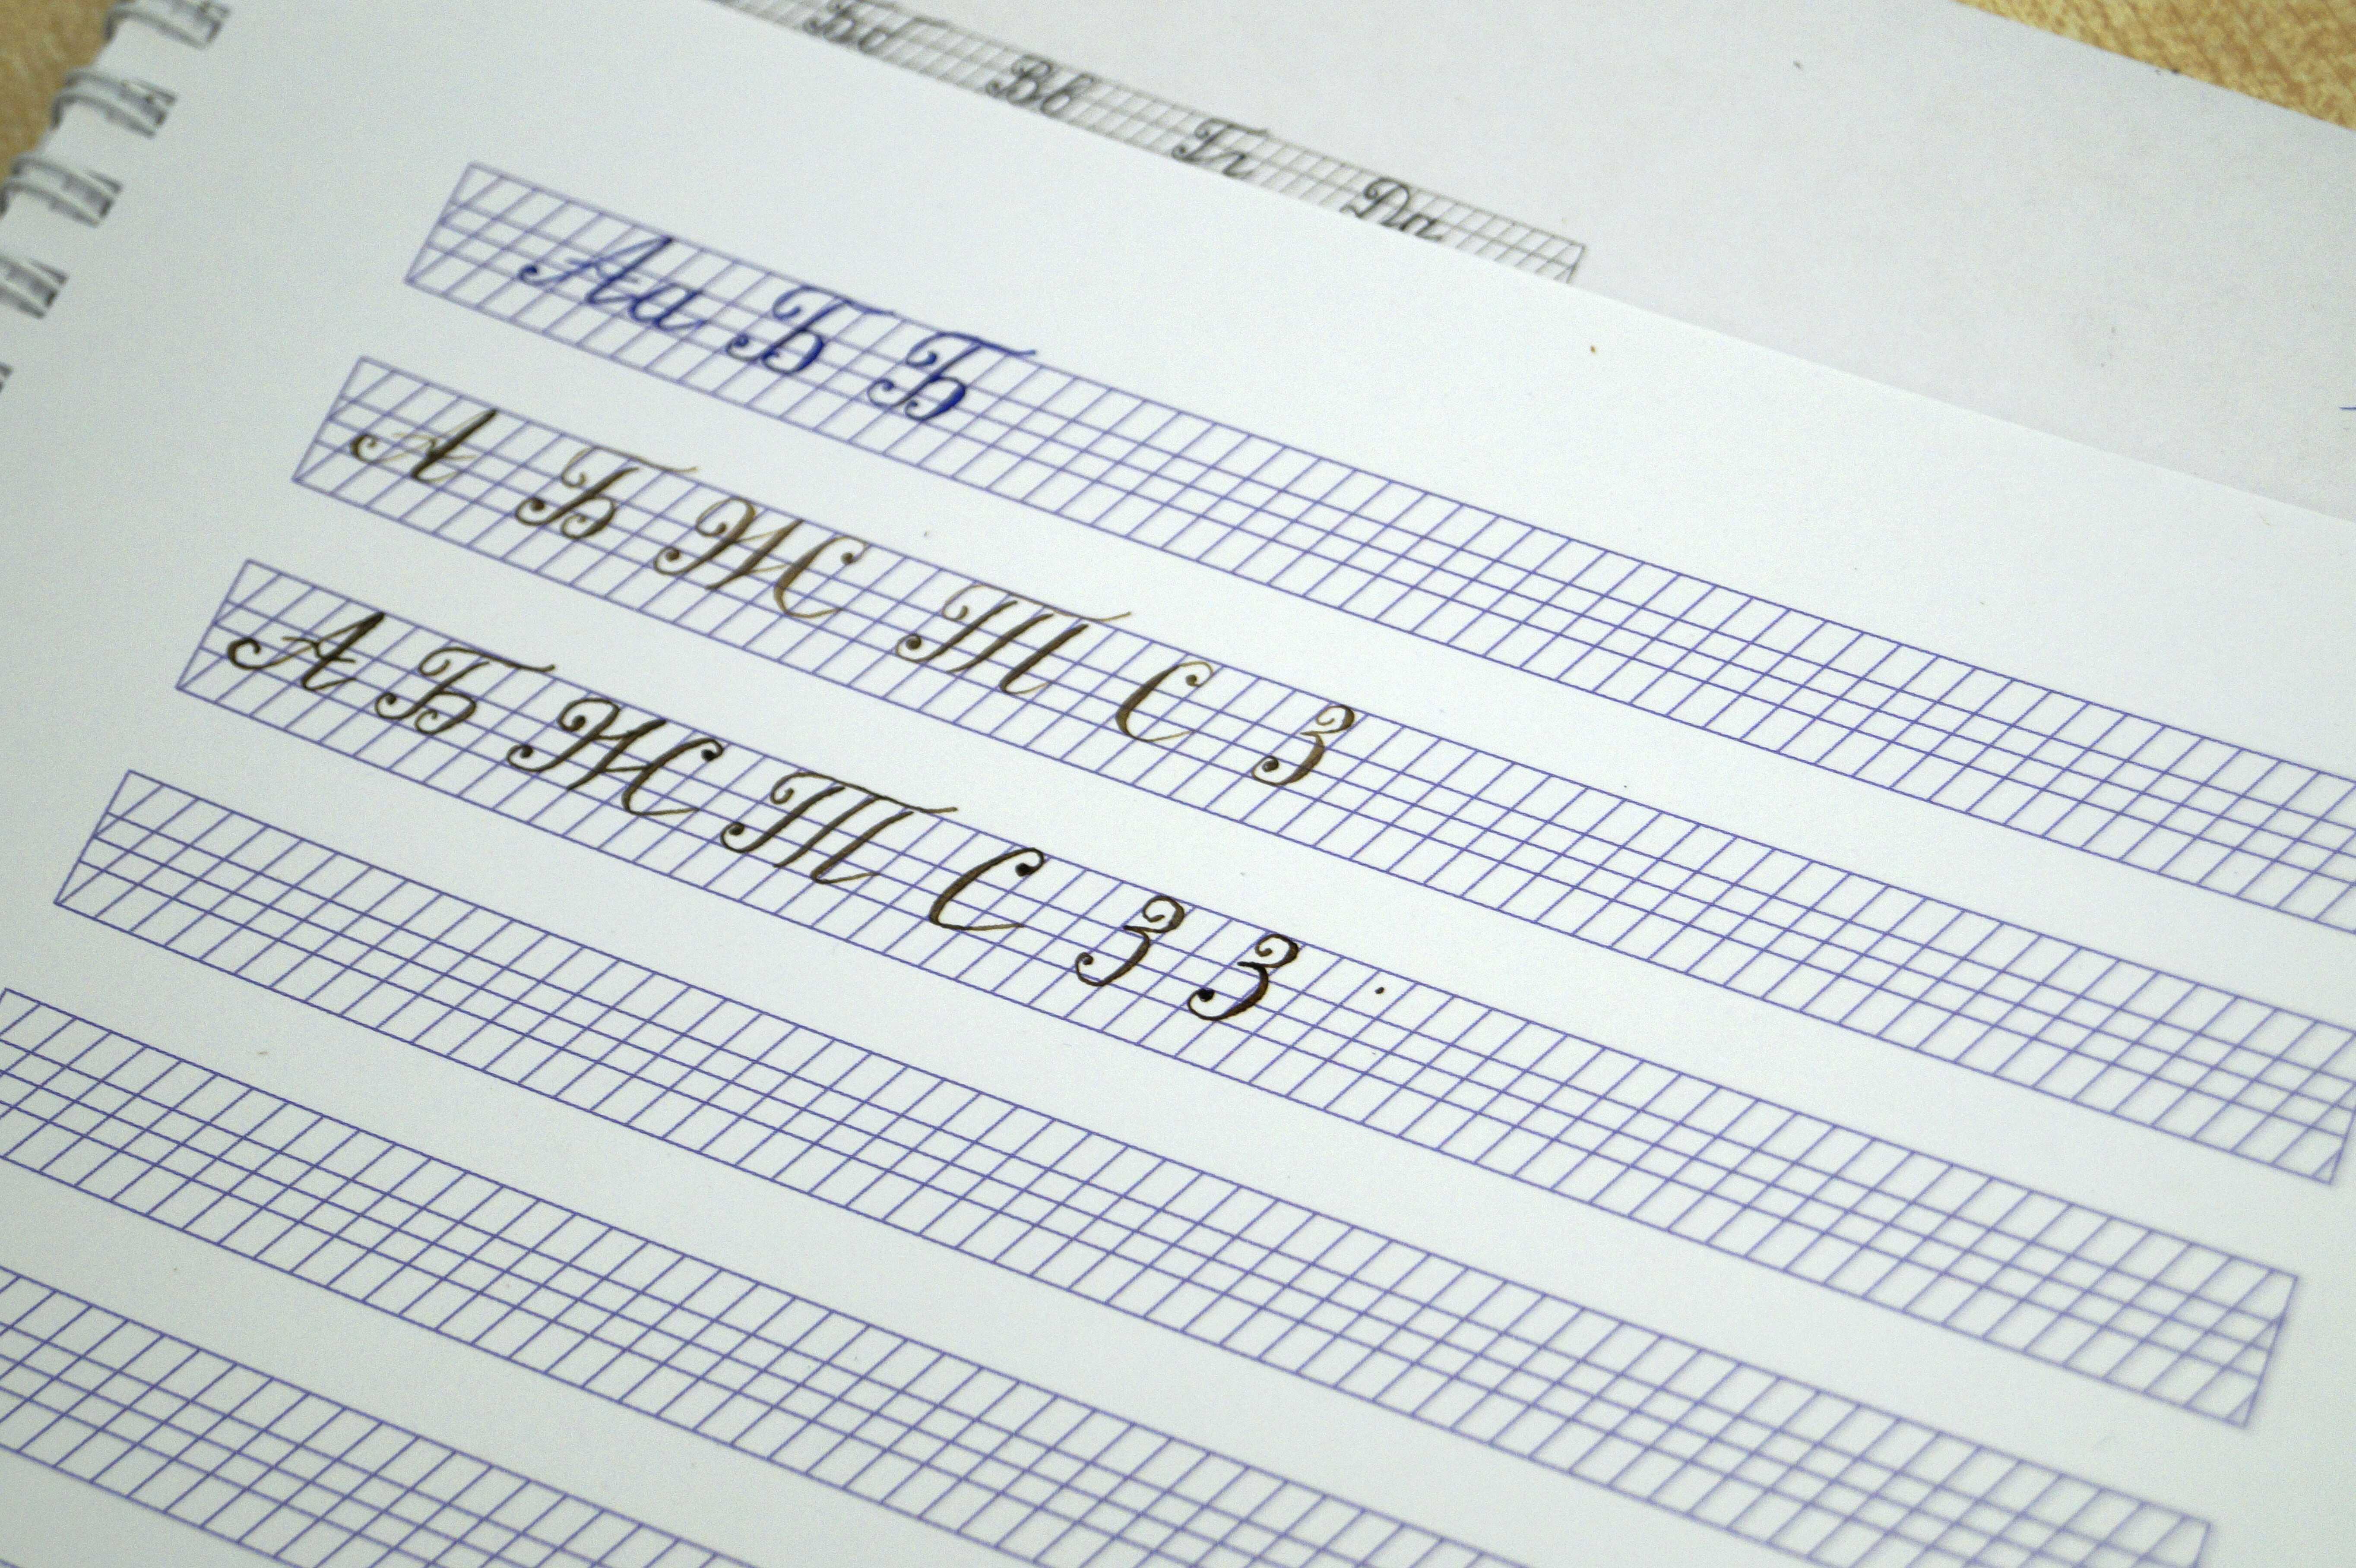 Бб Вв Гг Дд
Аа Б Б
А Б Ж Т С З
А Б Ж Т С З З .